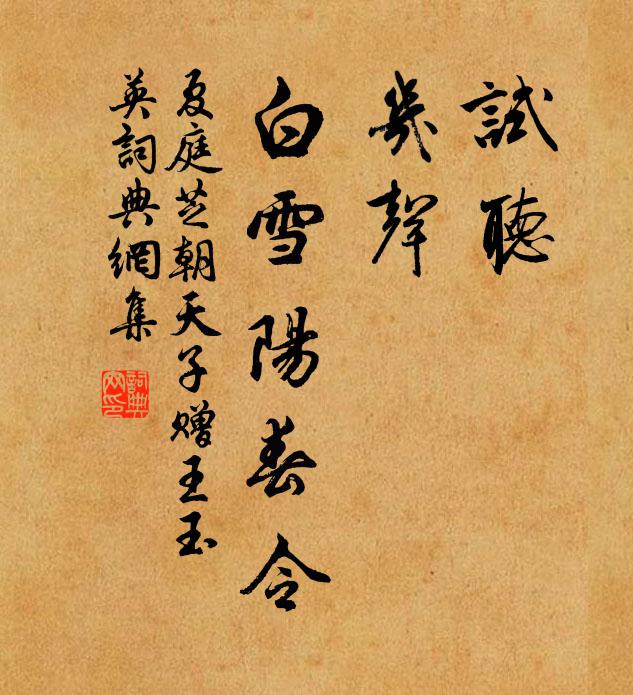 試聽
幾聲
白雪陽春令
夏庭芝朝天子贈王玉
英詞典網集
詞典
网印